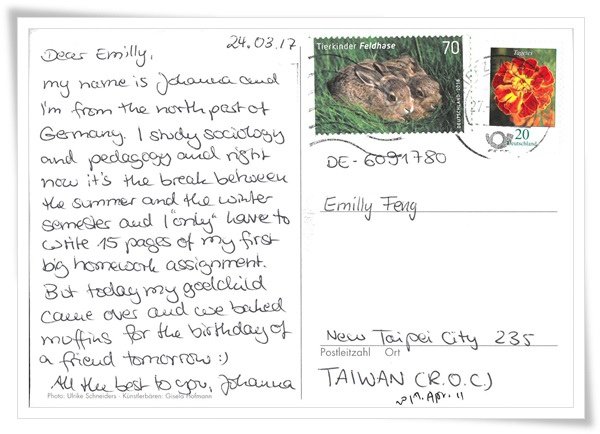 24.03.17
Dear Emilly,
my name is Johanna and
I'm from the north part of
Germany. I study sociology
and pedagogy and right
now it's the break between
the summer and the winter
semester and I "only" have to
write 15 pages of my first
big homework assignment.
But today my godchild
came over and we baked
muffins for the birthday of
a friend tomorrow :)
All the best to you, Johanna
Photo: Ulrike Schneiders · Künstlerbären: Gisela Hofmann
Tierkinder Feldhase
70
DEUTSCHLAND 2016
Tagetes
20
Deutschland
27.
DE-6091780
Emilly Feng
New Taipei City 235
Postleitzahl Ort
TAIWAN (R.O.C.)
2017. Apr. 11